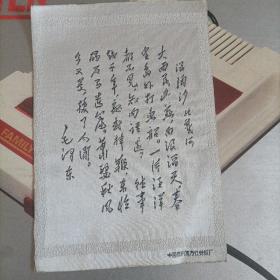 浪淘沙 北戴河
大雨落幽燕 白浪滔天 秦
皇岛外打鱼船。一片汪洋
都不见 知向谁边？往事
越千年 魏武挥鞭 东临
碣石有遗篇 萧瑟秋风
今又是 换了人间。
毛泽东
中国杭州东方红丝织厂
FAMILY